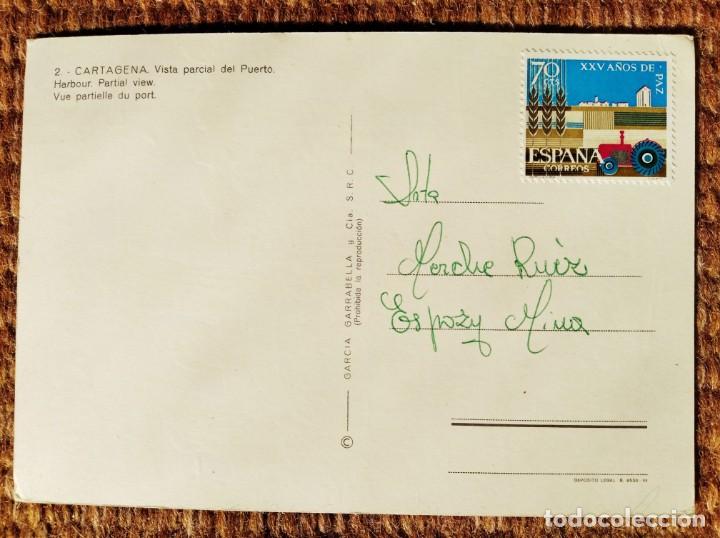 2. - CARTAGENA. Vista parcial del Puerto.
Harbour. Partial view.
Vue partielle du port.
70 PTS
XXV AÑOS DE PAZ
ESPAÑA
CORREOS
© GARCIA GARRABELLA y Cía. S. R. C.
(Prohibida la reproducción)
Srta
Merche Ruiz
Espoz y Mina
DEPOSITO LEGAL B.
todocoleccion